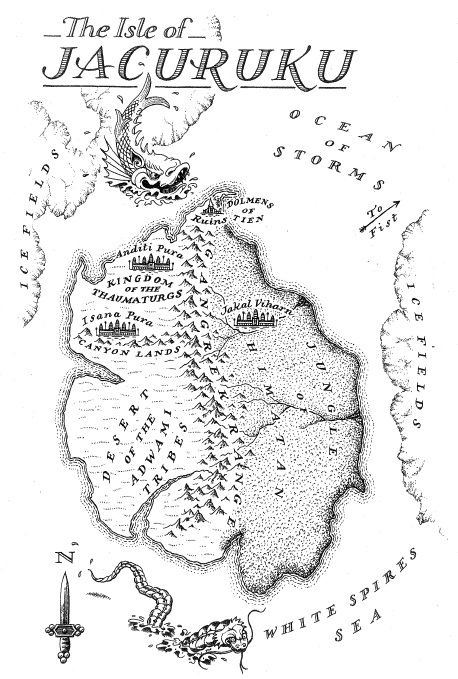 The Isle of
JACURUKU
OCEAN
OF
STORMS
ICE FIELDS
To
Fist
DOLMENS
OF
TIEN
Ruins
Anditi Pura
KINGDOM
OF THE
THAUMATURGS
Isana Pura
CANYON LANDS
Jakal Viharn
GANGREK RANGE
JUNGLE
OF
HIMATAN
ICE FIELDS
DESERT
OF THE
ADWAMI
TRIBES
N
WHITE SPIRES
SEA